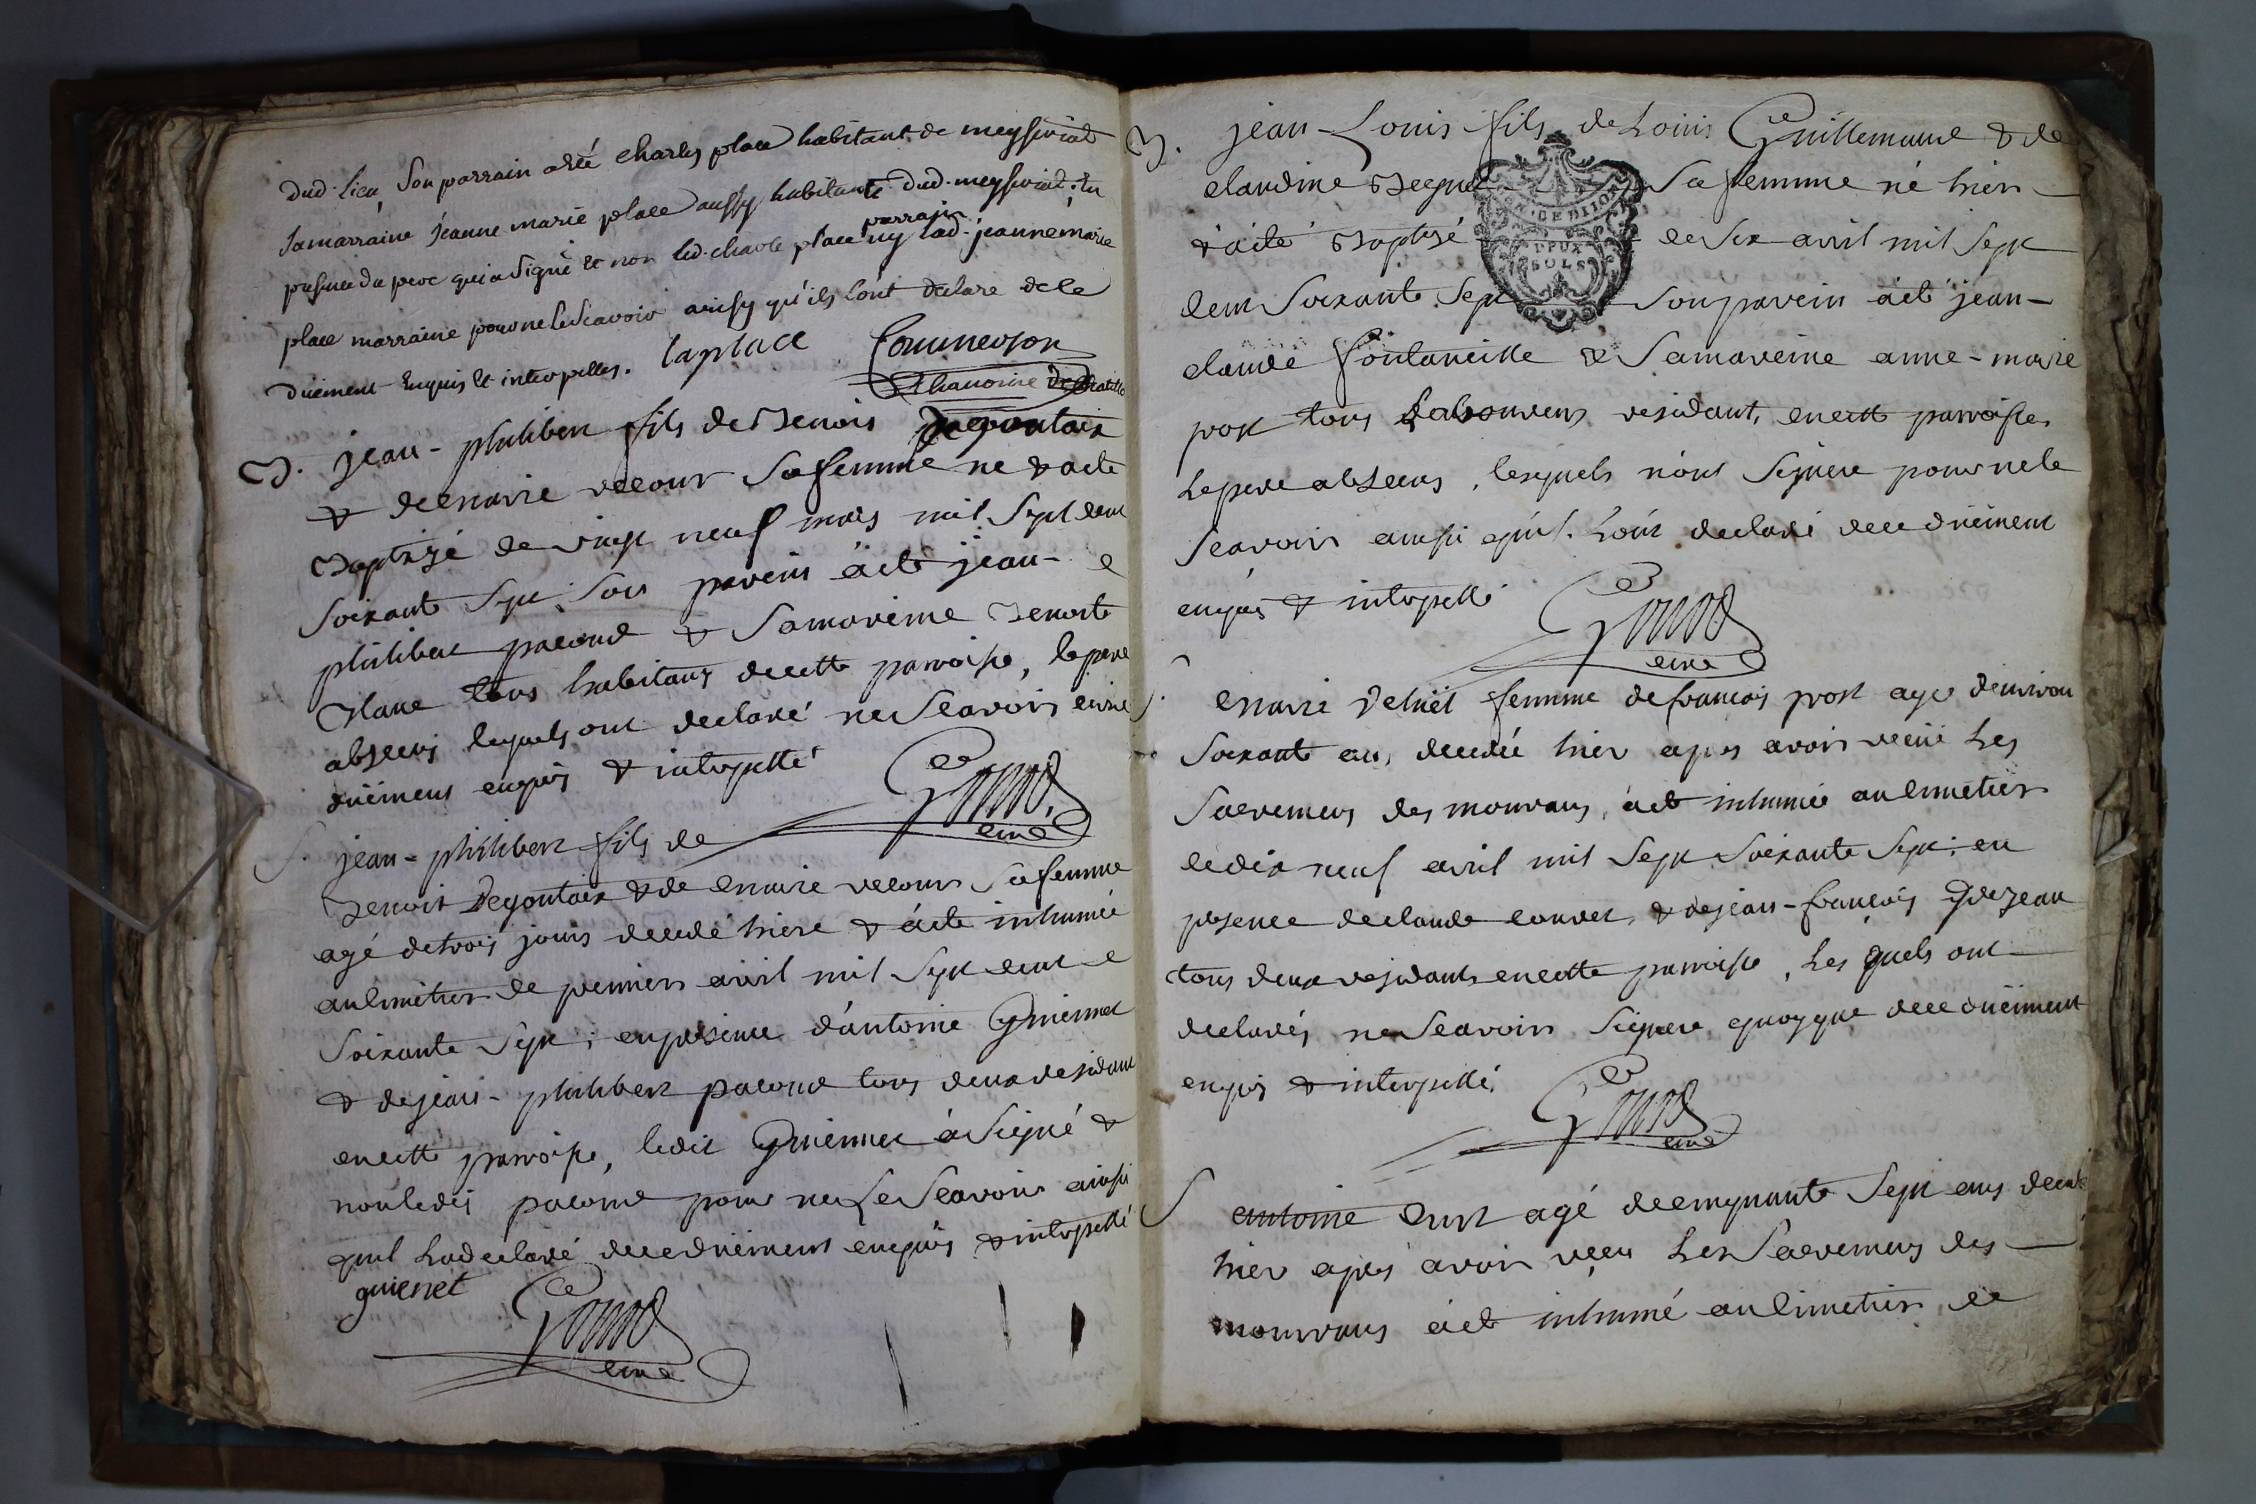 dud. lieu, Son parrain a eté charles place habitant de meyseriat
sa marraine jeanne marie place aussy habitante dud. meyseriat; en
presence du pere qui a signé et non led. charle place parrain ny lad. jeanne marie
place marraine pour ne le scavoir ainsy qu'ils l'ont declare de ce
düement enquis et interpelles. laplace Commerson
chanoine de
B. jean-philibert fils de Benoit Degoutaix
& de marie recour sa femme ne & a ete
Baptizé le vingt neuf mars mil sept cent
soixante sept, son parein a eté jean-
philibert pacoud & sa mareine Benoite
tous habitans de cette paroisse, le pere
absens lequels ont declaré ne scavoir ecrire
düemens enquis & interpellé
Gonod
curé
S. jean-philibert fils de
Benoit Degoutaix & de marie recour sa femme
agé de trois jours decedé hiere & a ete inhumée
au cimetier le premier avril mil sept cent
soixante sept; en presence d'antoine Guiennet
& de jean-philibert pacoud tous deux residant
en cette paroisse, ledit Guiennet a signé &
non ledit pacoud pour ne le scavoir ainsi
quil la declaré de ce düement enquis & interpellé
guienet
Gonod
curé
B. jean-Louis fils de Louis Guillemaud & de
claudine sa femme né hier
& a eté Baptizé le six avril mil sept
GEN. DE DIJON
DEUX
SOLS
cent soixante sept son parein a eté jean-
claude fontaneille & sa mareine anne-marie
post tous laboureurs residant en cette paroisse
le pere absens, lesquels n'ont signere pour ne le
scavoir ainsi quil l'ont declaré de ce düement
enquis & interpellé
Gonod
curé
S. marie femme de francois post agé d'environ
soixante ans, decedée hier apres avoir recüe les
sacremens des mourans, a eté inhumée au cimetier
le dix neuf avril mil sept soixante sept; en
presence de claude convert, & de jean-françois
tous deux residants en cette paroisse, les quels ont
declarés ne scavoir signere quoyque de ce düement
enquis & interpellé.
Gonod
curé
S antoine agé de cinquante sept ans decedé
hier apres avoir reçu les sacremens des
mourans a eté inhumé au cimetier le